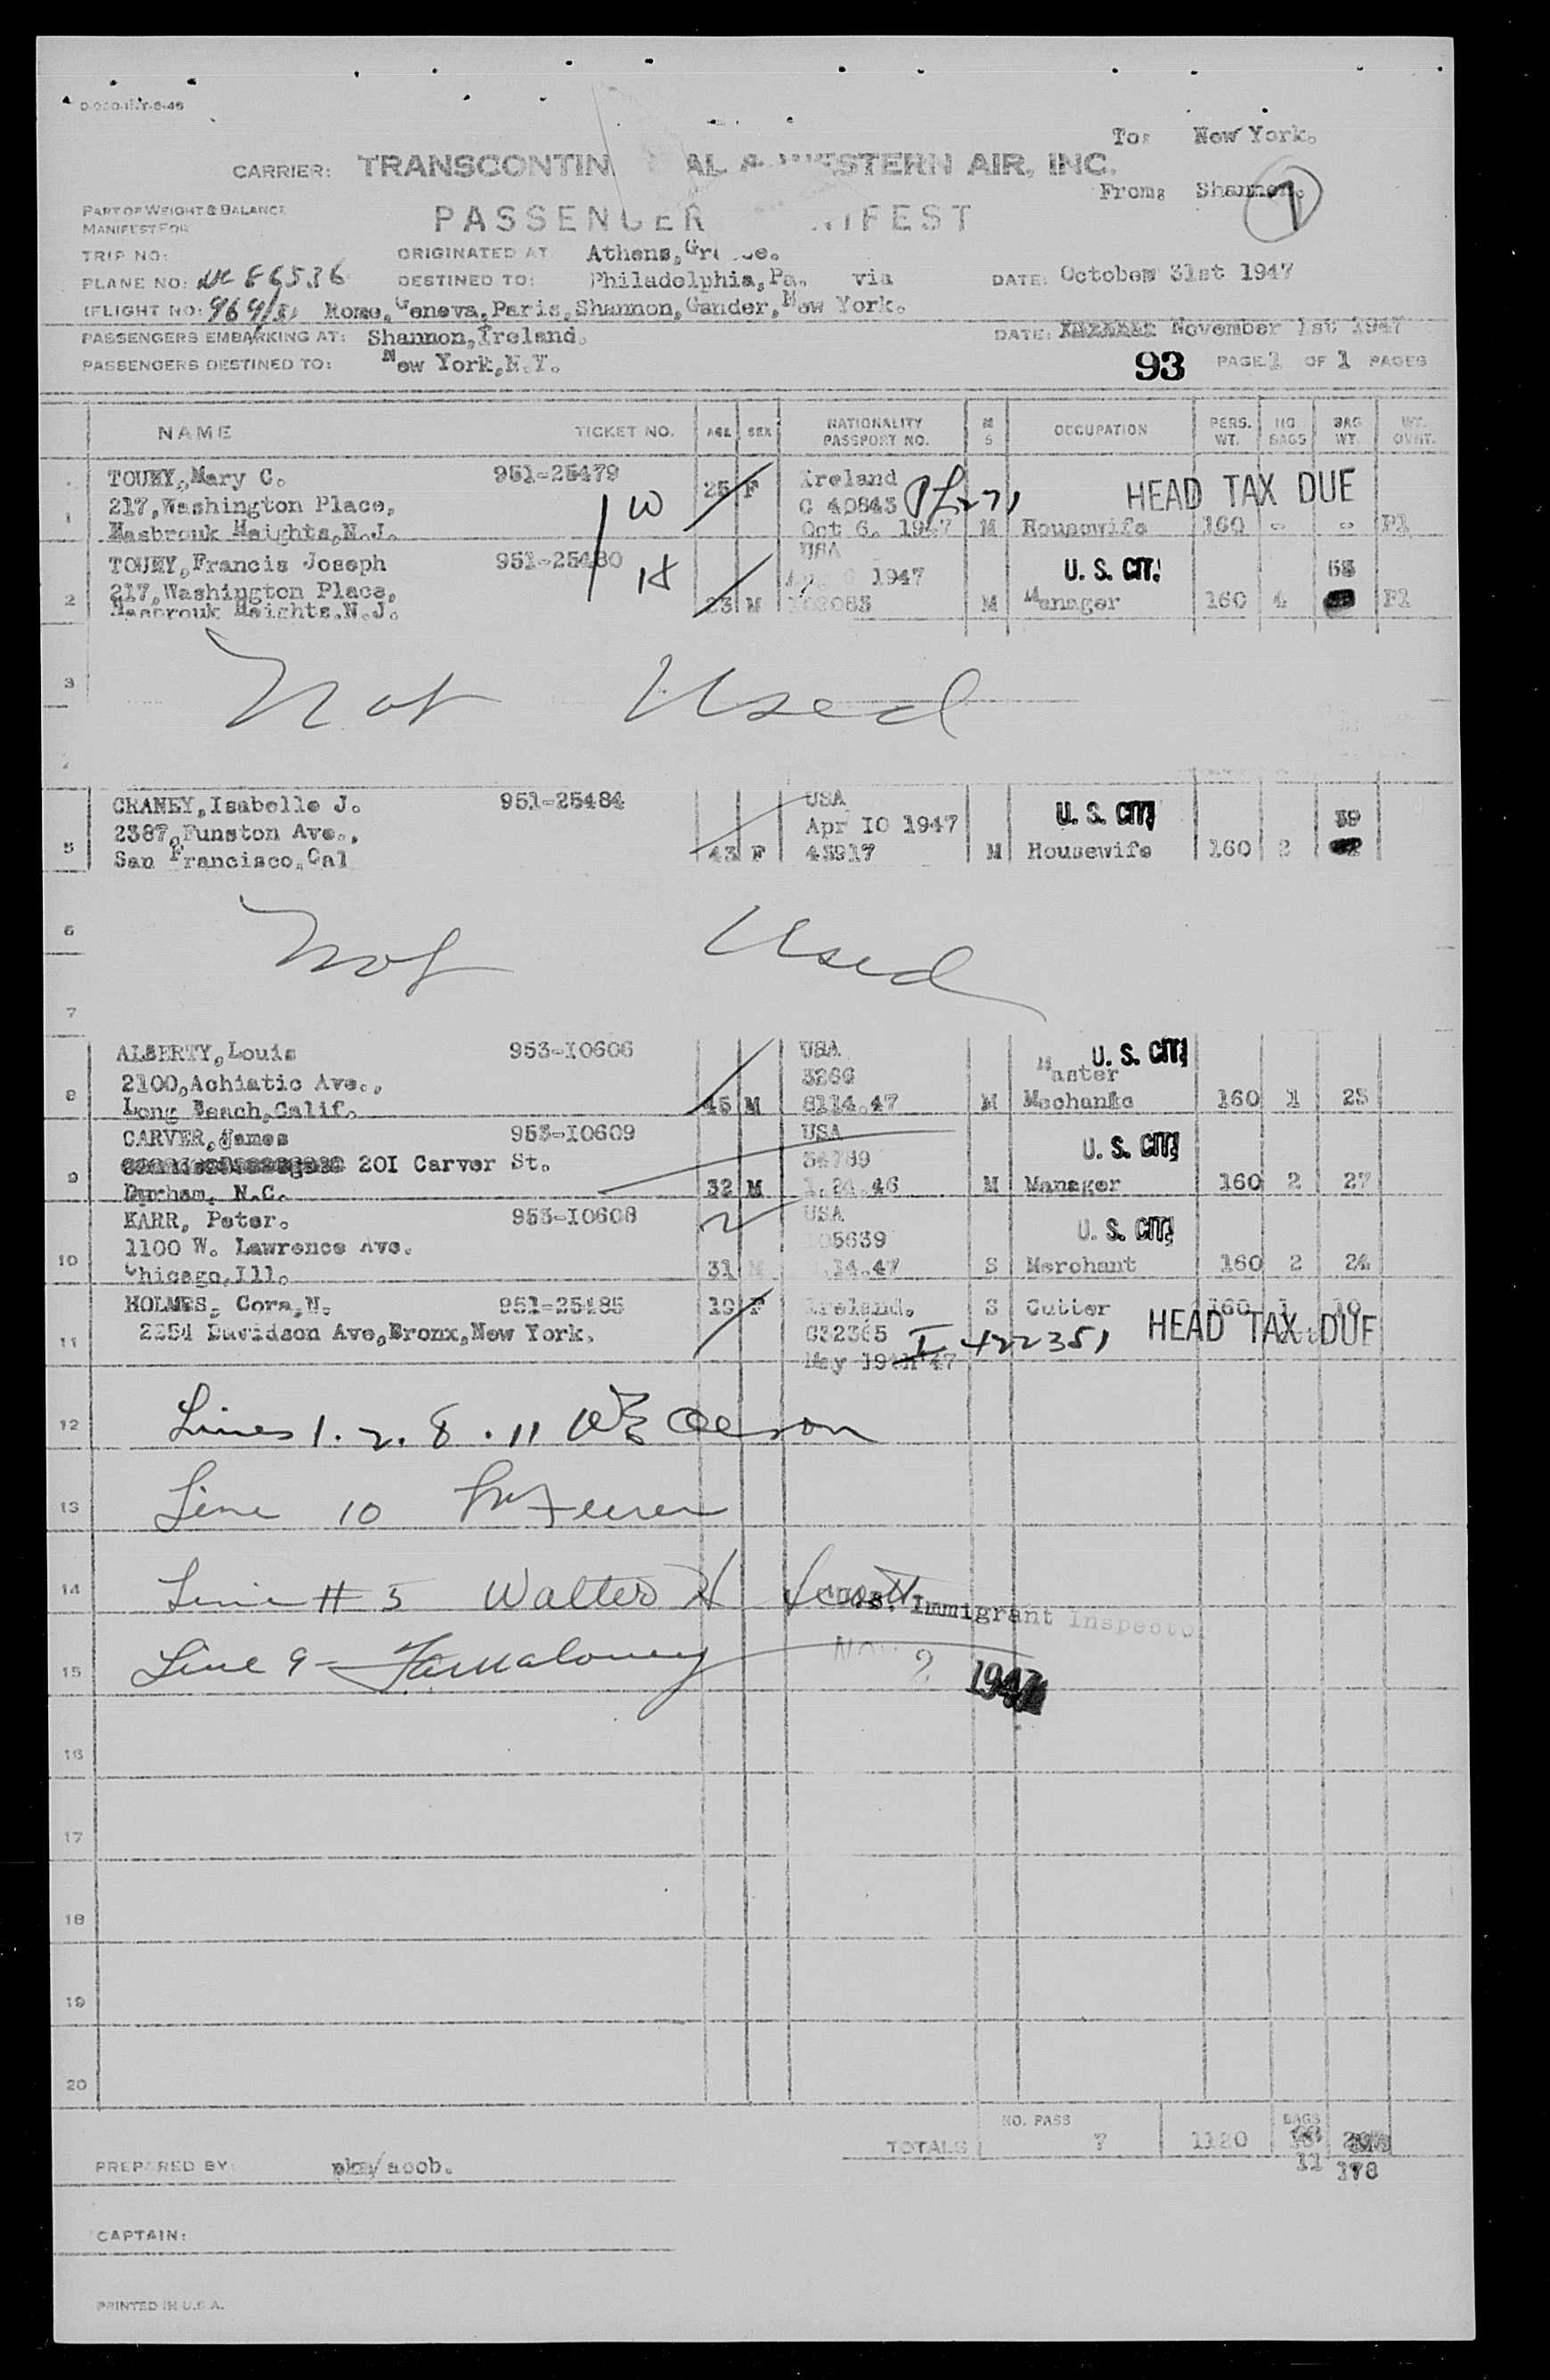 To: New York.
CARRIER: TRANSCONTIN AL & WESTERN AIR, INC.
From: Shannon.
1
PART OF WEIGHT & BALANCE
MANIFEST FOR
PASSENGER IFEST
TRIP NO:
ORIGINATED AT Athens,
PLANE NO: NC 86536
DESTINED TO: Philadelphia, Pa. via
DATE: October 31st 1947
FLIGHT NO: Rome, Geneva, Paris, Shannon, Gander, New York.
PASSENGERS EMBARKING AT: Shannon, Ireland.
DATE: November 1st 1947
PASSENGERS DESTINED TO: New York, N.Y.
93 PAGE 1 OF 1 PAGES
NAME TICKET NO. AGE SEX NATIONALITY PASSPORT NO. M S OCCUPATION PERS. WT. NO. BAGS BAG WT. WT. OVHT.
TOUHY, Mary C. 951-25479 25 F Ireland
217, Washington Place, G 40843 HEAD TAX DUE
1 Hasbrouk Heights, N.J. Oct 6. 1947 M Housewife 160 - - Fl
TOUHY, Francis Joseph 951-25480 USA
217, Washington Place, 1947 U. S. CIT. 55
2 Hasbrouk Heights, N.J. 23 M M Manager 160 4 Fl
3 Not Used
CRANEY, Isabelle J. 951-25484 USA U. S. CIT
2387, Funston Ave., Apr 10 1947 39
5 San Francisco, Cal 43 F 43917 M Housewife 160 2
6 Not Used
7
ALBERTY, Louis 953-I0606 USA U. S. CIT
2100, Achiatic Ave., 3266 Master
8 Long Beach, Calif. 45 M 8114.47 M Mechanic 160 1 25
CARVER, James 953-I0609 USA
20I Carver St. 34789 U. S. CIT
9 Durham, N.C. 32 M 1.24.46 M Manager 160 2 27
KARR, Peter. 953-I0608 USA
1100 W. Lawrence Ave. 05639 U. S. CIT
10 Chicago, Ill. 31 M .14.47 S Merchant 160 2 24
HOLMES, Cora, N. 951-25485 19 F Ireland. S Cutter 160 1
11 2254 Davidson Ave, Bronx, New York. I-422351 HEAD TAX DUE
May 19th 47
12 Lines 1. 2. 8. 11
13 Line 10
14 Line # 5 Walter H Scott
Immigrant Inspector
15 Line 9 - Maloney
NOV 2 1947
16
17
18
19
20
NO. PASS BAGS
TOTALS 7 1120
11 178
PREPARED BY:
CAPTAIN:
PRINTED IN U.S.A.